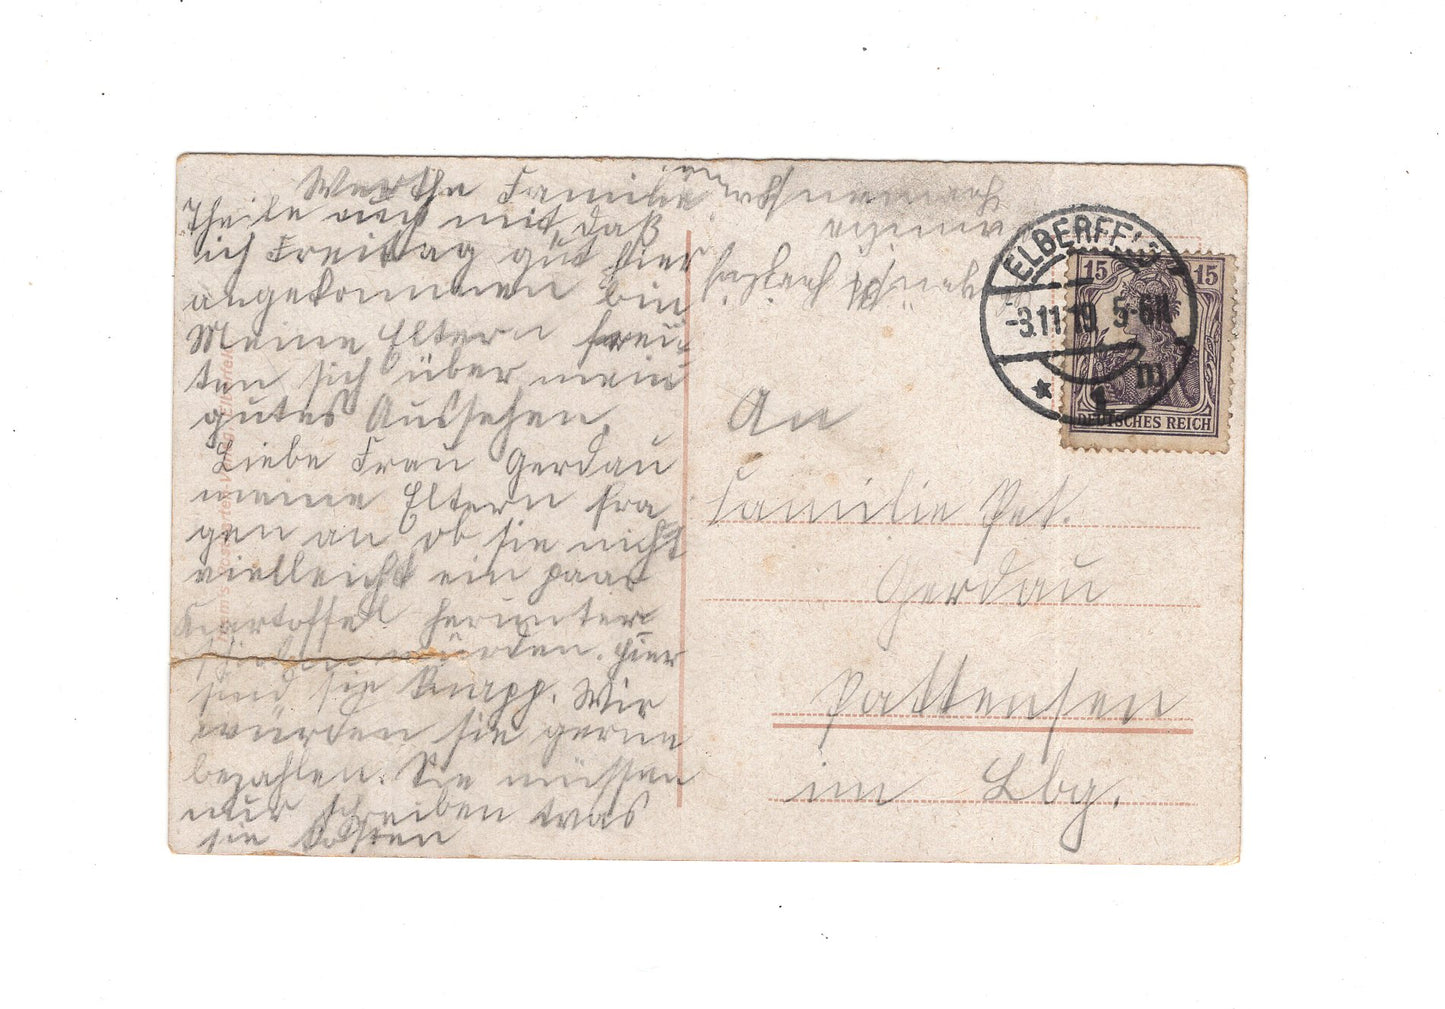 Werthe Familie
Theile euch mit, daß
ich Freitag gut hier
angekommen bin
Meine Eltern freu
ten sich über mein
gutes Aussehen.
Liebe Frau Gerdau
meine Eltern fra
gen an ob sie nicht
vielleicht ein paar
Kartoffel herunter
schicken würden. hier
sind sie knapp. Wir
würden sie gerne
bezahlen. Sie müssen
nur schreiben was
sie kosten
ELBERFELD
-3.11.19 5-6N
* 1 m
15 15
DEUTSCHES REICH
An
Familie Pet.
Gerdau
Pattensen
im Lbg.